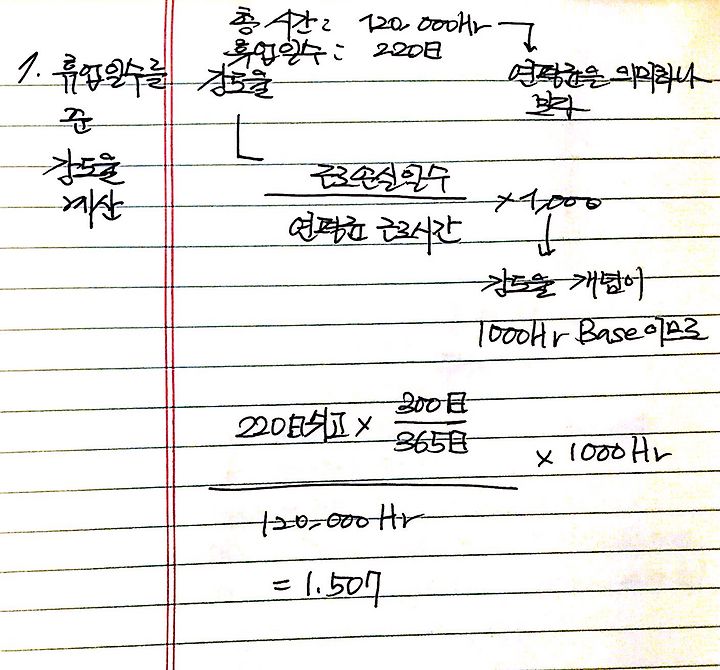 총 시간: 120.000Hr
휴업일수: 220日
강도율
연평균을 의미하나
보다
1. 휴업일수를
준
강도율
계산
근로손실일수
연평균 근로시간
×1,000
강도율 개념이
1000Hr Base이므로
220日쉬고 × 300日
365日
× 1000Hr
120.000Hr
= 1.507